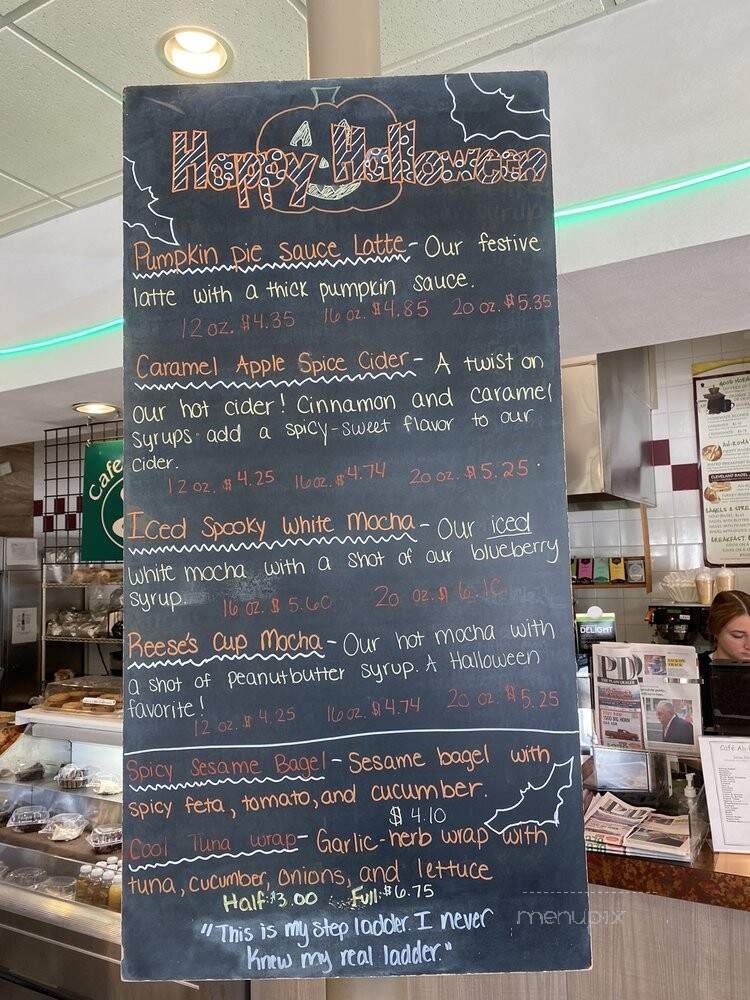 Happy Halloween
Pumpkin pie sauce Latte - Our festive
latte with a thick pumpkin sauce.
12 oz. $4.35 16 oz. $4.85 20 oz. $5.35
Caramel Apple Spice Cider - A twist on
our hot cider! Cinnamon and caramel
syrups add a spicy-sweet flavor to our
cider.
12 oz. $4.25 16oz. $4.74 20oz. $5.25
Iced Spooky White Mocha - Our iced
white mocha with a shot of our blueberry
syrup. 16 oz. $5.60 20 oz. $6.10
Reese's Cup Mocha - Our hot mocha with
a shot of peanutbutter syrup. A Halloween
favorite!
12 oz. $4.25 16oz. $4.74 20 oz. $5.25
Spicy Sesame Bagel - Sesame bagel with
spicy feta, tomato, and cucumber.
$4.10
Cool Tuna wrap - Garlic-herb wrap with
tuna, cucumber, onions, and lettuce
Half: $3.00 Full: $6.75
"This is my step ladder. I never
knew my real ladder."
menupix
Cafe
DELIGHT
PD
Café Ah